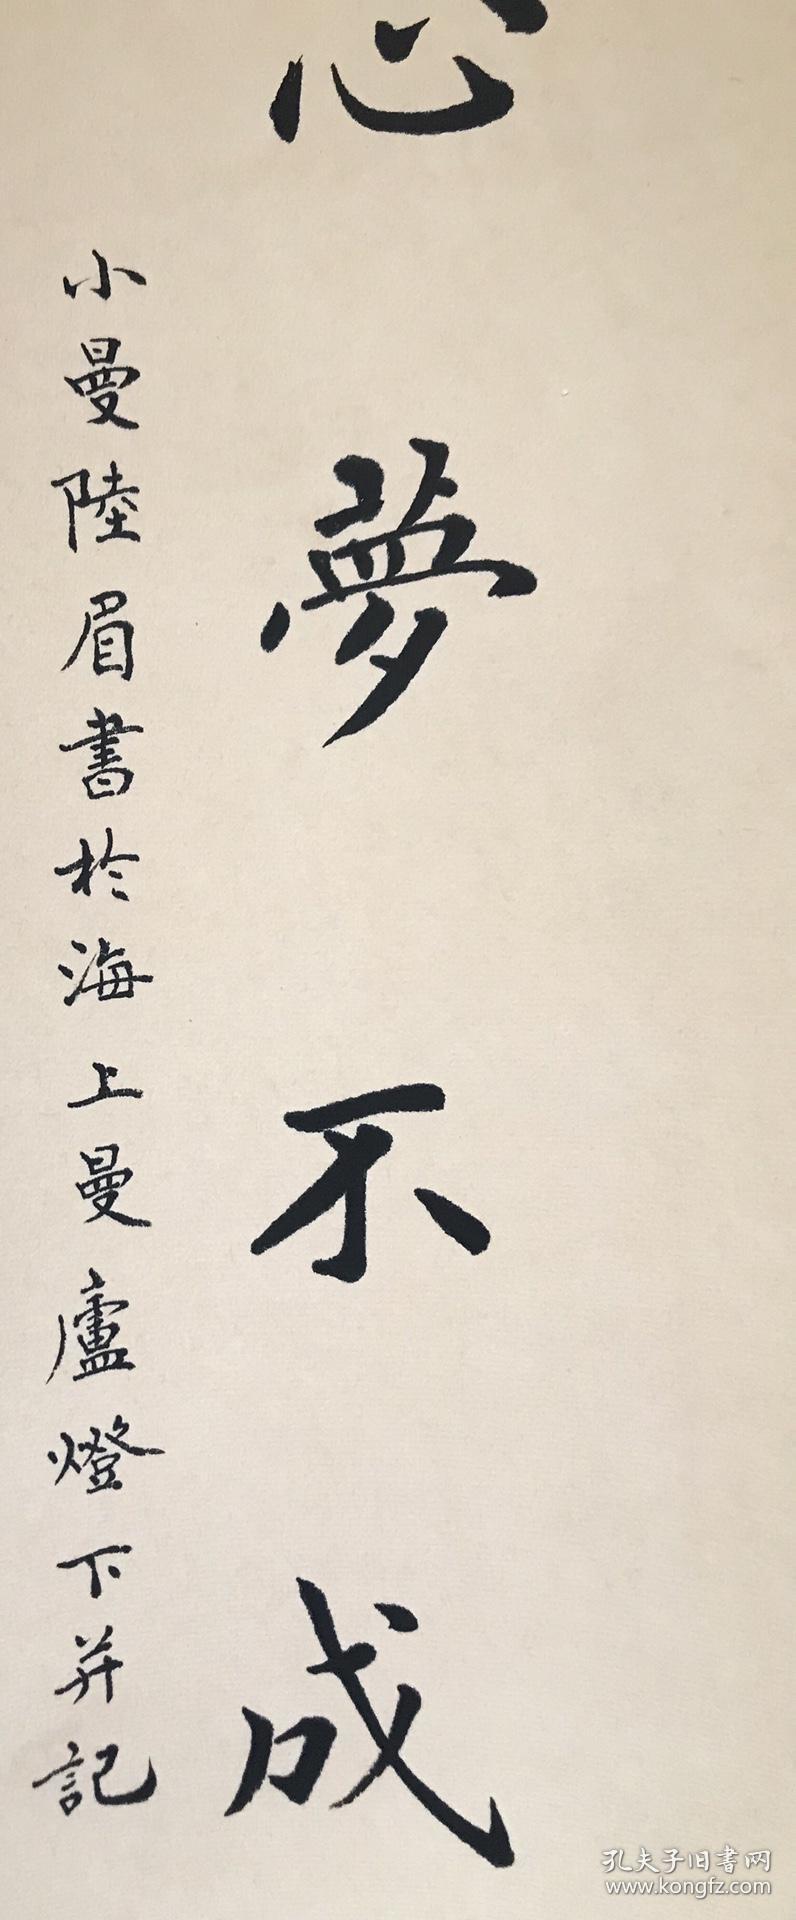 心夢不成
小曼陸眉書於海上曼廬燈下并記
孔夫子旧书网
www.kongfz.com